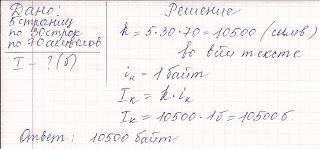 Дано:
5 страниц
по 30 строк
по 70 символов
I - ? (б)
Решение
k = 5·30·70 = 10500 (симв)
во всём тексте
iк = 1 байт
Iк = k·iк
Iк = 10500·1б = 10500б
Ответ: 10500 байт